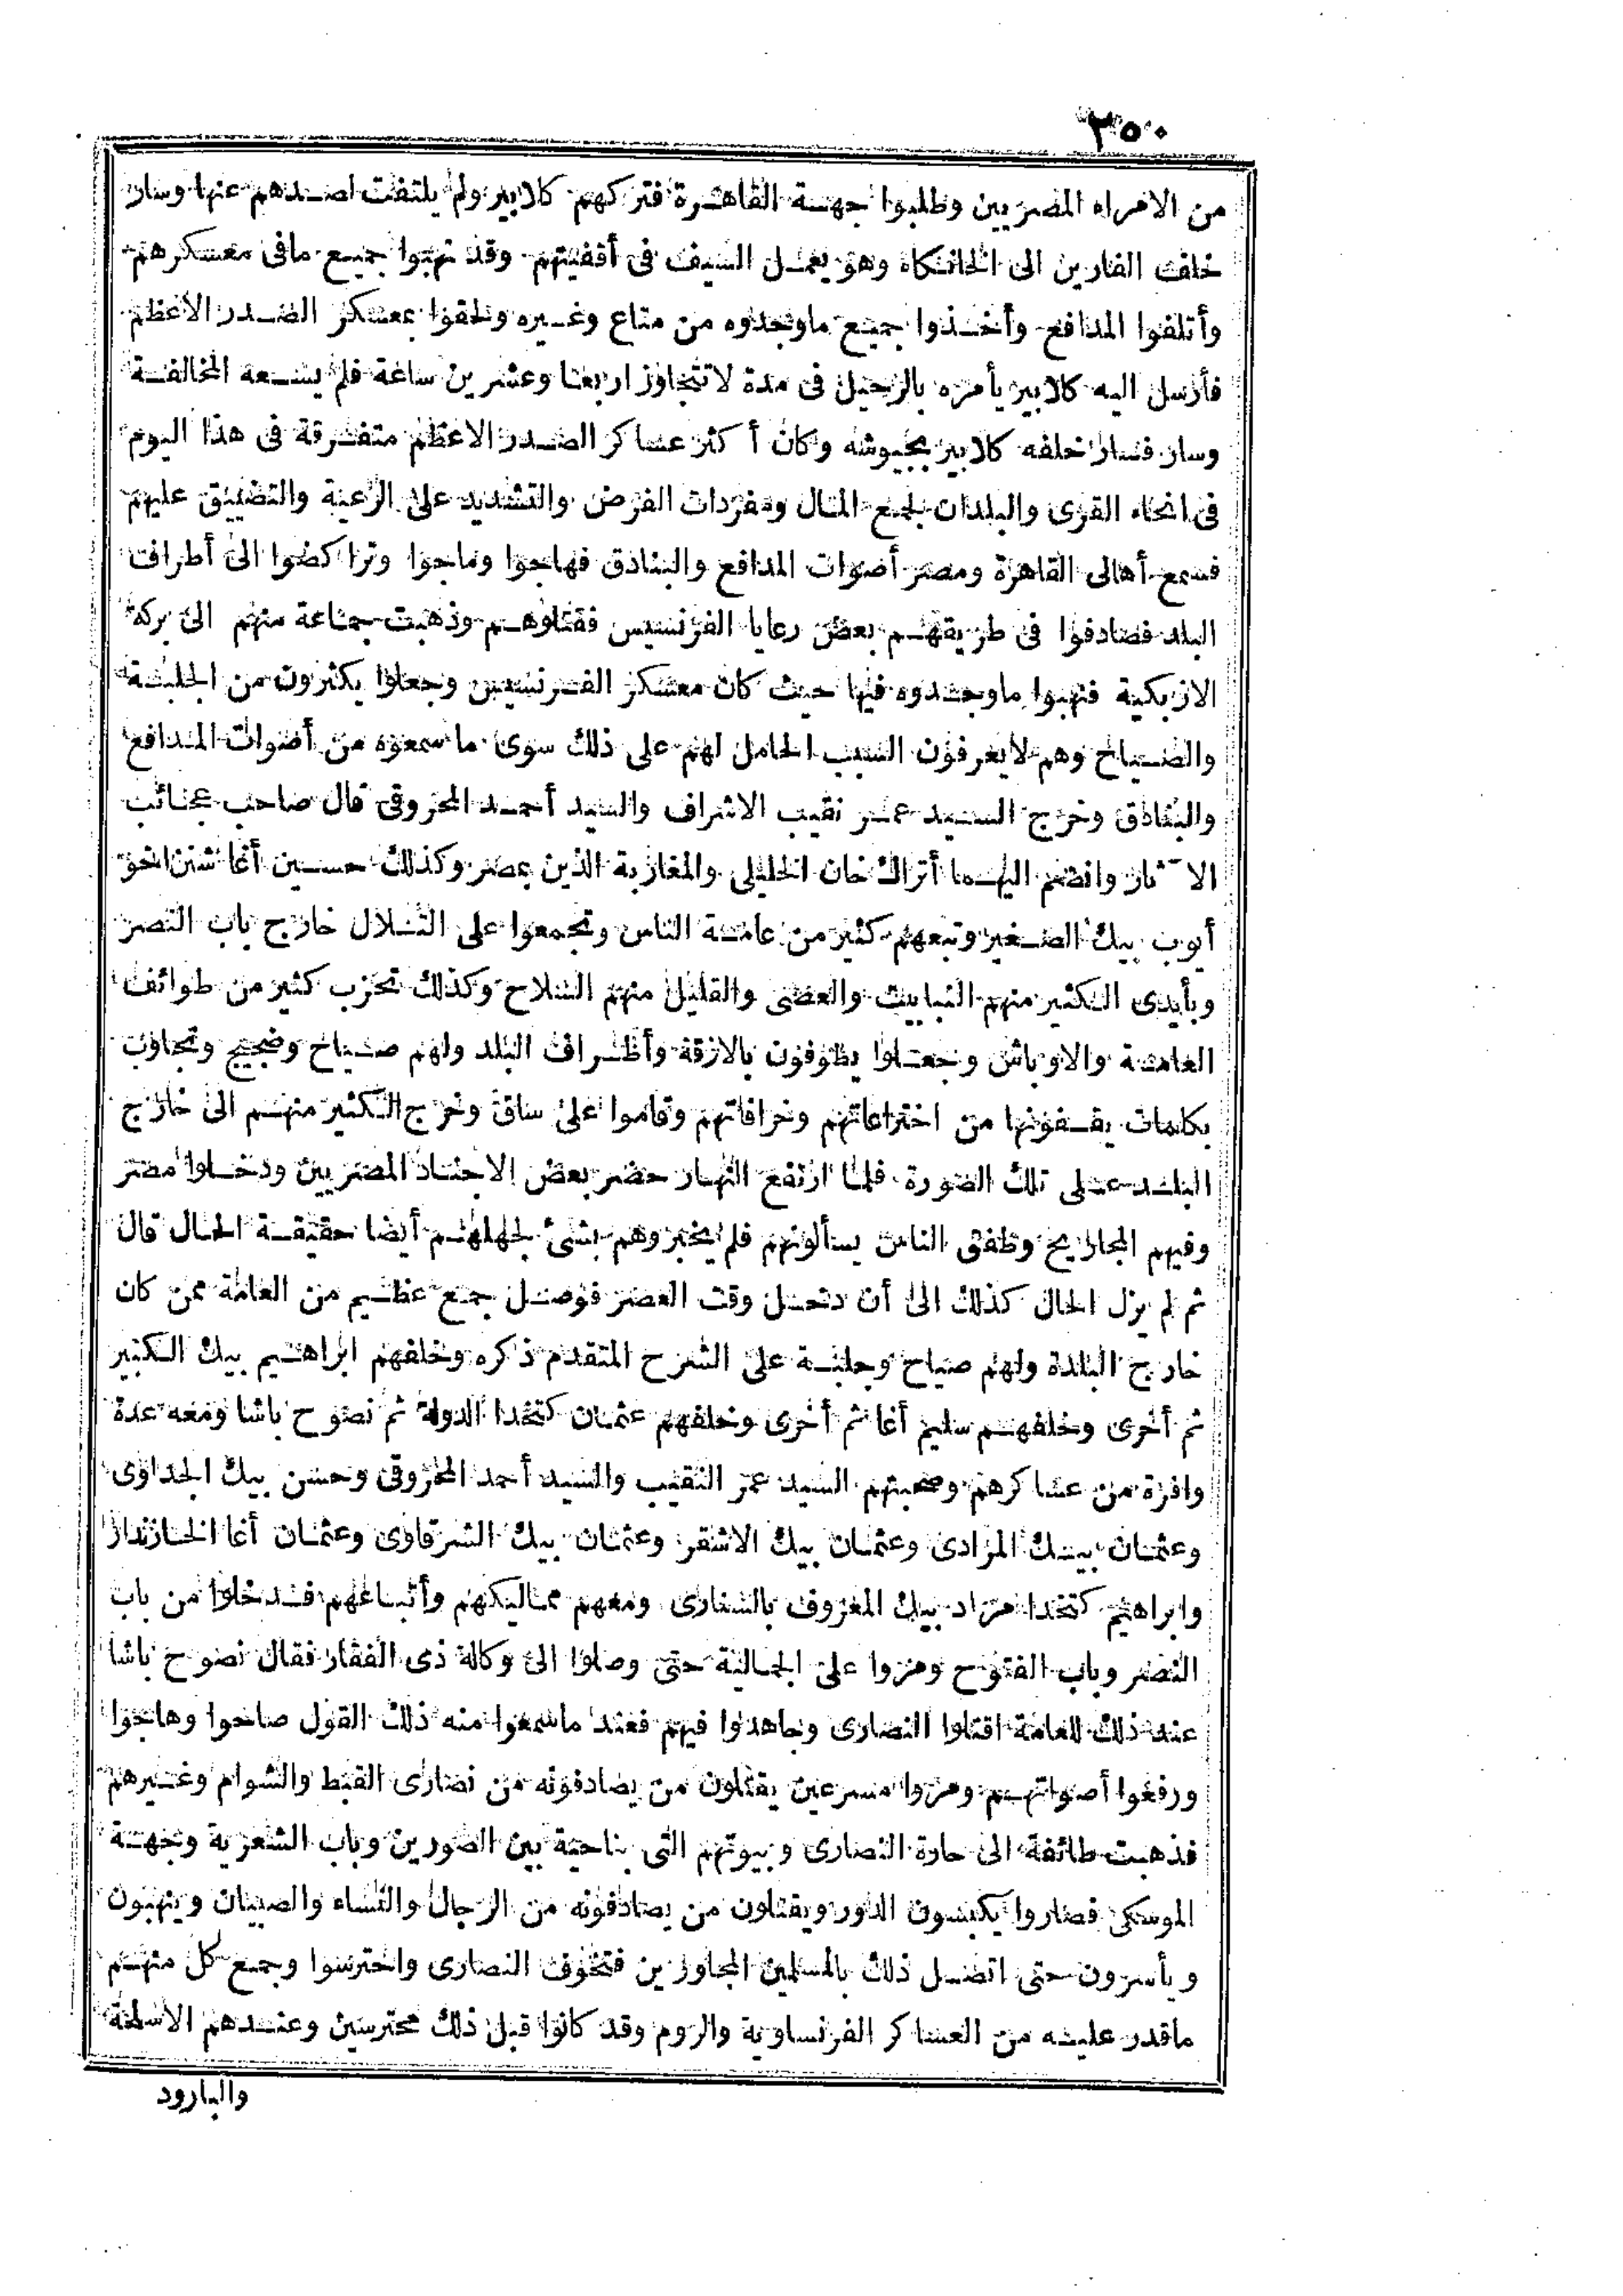 ٣٥٠
من الامراء المصريين وطلبوا جهة القاهرة فتركهم كلابير ولم يلتفت لصدهم عنها وسار
خلف الفارين الى الخانكاه وهو يعمل السيف فى أقفيتهم وقد نهبوا جميع مافى معسكرهم
وأتلفوا المدافع وأخذوا جميع ماوجدوه من متاع وغيره ولحقوا بمعسكر الصدر الاعظم
فأرسل اليه كلابير يأمره بالرحيل فى مدة لاتتجاوز اربعا وعشرين ساعة فلم يسعه المخالفة
وسار فسار خلفه كلابير بجيوشه وكان أكثر عساكر الصدر الاعظم متفرقة فى هذا اليوم
فى انحاء القرى والبلدان لجمع المال ومفردات الفرض والتشديد على الرعية والتضييق عليهم
فسمع أهالى القاهرة ومصر أصوات المدافع والبنادق فهاجوا وماجوا وتراكضوا الى أطراف
البلد فصادفوا فى طريقهم بعض رعايا الفرنسيس فقتلوهم وذهبت جماعة منهم الى بركة
الازبكية فنهبوا ماوجدوه فيها حيث كان معسكر الفرنسيس وجعلوا يكثرون من الجلبة
والصياح وهم لايعرفون السبب الحامل لهم على ذلك سوى ماسمعوه من أصوات المدافع
والبنادق وخرج السيد عمر نقيب الاشراف والسيد أحمد المحروقى قال صاحب عجائب
الآثار وانضم اليهما أتراك خان الخليلى والمغاربة الذين بمصر وكذلك حسين أغا شنن اخو
أيوب بيك الصغير وتبعهم كثير من عامة الناس وتجمعوا على التلال خارج باب النصر
وبأيدى الكثير منهم النبابيت والعصى والقليل منهم السلاح وكذلك تحزب كثير من طوائف
العامة والاوباش وجعلوا يطوفون بالازقة وأطراف البلد ولهم صياح وضجيج وتجاوب
بكلمات يقفونها من اختراعاتهم وخرافاتهم وقاموا على ساق وخرج الكثير منهم الى خارج
البلد على تلك الصورة فلما ارتفع النهار حضر بعض الاجناد المصريين ودخلوا مصر
وفيهم المجاريح وطفق الناس يسألونهم فلم يخبروهم بشئ لجهلهم أيضا حقيقة الحال قال
ثم لم يزل الحال كذلك الى أن دخل وقت العصر فوصل جمع عظيم من العامة ممن كان
خارج البلدة ولهم صياح وجلبة على الشرح المتقدم ذكره وخلفهم ابراهيم بيك الكبير
ثم أخرى وخلفهم سليم أغا ثم أخرى وخلفهم عثمان كتخدا الدولة ثم نصوح باشا ومعه عدة
وافرة من عساكرهم وصحبتهم السيد عمر النقيب والسيد أحمد المحروقى وحسن بيك الجداوى
وعثمان بيك المرادى وعثمان بيك الاشقر وعثمان بيك الشرقاوى وعثمان أغا الخازندار
وابراهيم كتخدا مراد بيك المعروف بالسنارى ومعهم مماليكهم وأتباعهم فدخلوا من باب
النصر وباب الفتوح ومروا على الجمالية حتى وصلوا الى وكالة ذى الفقار فقال نصوح باشا
عند ذلك للعامة اقتلوا النصارى وجاهدوا فيهم فعند ماسمعوا منه ذلك القول صاحوا وهاجوا
ورفعوا أصواتهم ومروا مسرعين يقتلون من يصادفونه من نصارى القبط والشوام وغيرهم
فذهبت طائفة الى حارة النصارى وبيوتهم التى بناحية بين الصورين وباب الشعرية وجهة
الموسكى فصاروا يكبسون الدور ويقتلون من يصادفونه من الرجال والنساء والصبيان وينهبون
ويأسرون حتى اتصل ذلك بالمسلمين المجاورين فتخوف النصارى واحترسوا وجمع كل منهم
ماقدر عليه من العساكر الفرنساوية والروم وقد كانوا قبل ذلك محترسين وعندهم الاسلحة
والبارود